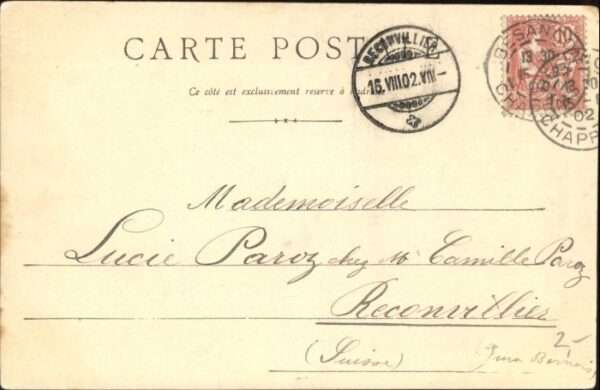 CARTE POST
Ce côté est exclusivement réservé à
RECONVILLIER
16.VIII.02.VIII–
10
BESAN
CHAPR
02
Mademoiselle
Lucie Paroz chez Mr Camille Paroz
Reconvillier
(Suisse)
2-
(Jura Bernois)